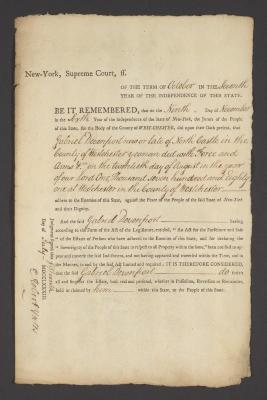 New-York, Supreme Court, ſſ.
OF THE TERM OF October IN THE Seventh
YEAR OF THE INDEPENDENCE OF THIS STATE.
BE IT REMEMBERED, that on the Ninth Day of November
in the Sixth Year of the Independence of the State of New-York, the Jurors of the People
of this State, for the Body of the County of WEST-CHESTER, did upon their Oath present, that
Gabriel Devenport now or late of North Castle in the
County of Westchester yeoman did with Force and
Arms &c. on the twentieth day of August in the year
of our Lord One Thousand seven hundred and Eighty
one at Westchester in the County of Westchester
adhere to the Enemies of this State, against the Peace of the People of the said State of New-York
and their Dignity.
And the said Gabriel Devenport having
according to the Form of the Act of the Legislature, entitled, "An Act for the Forfeiture and Sale
"of the Estates of Persons who have adhered to the Enemies of this State, and for declaring the
"Sovereignty of the People of this State in respect to all Property within the same," been notified to ap-
pear and traverse the said Indictment, and not having appeared and traversed within the Time, and in
the Manner, in and by the said Act limited and required; IT IS THEREFORE CONSIDERED,
that the said Gabriel Devenport do
forfeit all and singular the Estate, both real and personal, whether in Possession, Reversion or Remainder,
held or claimed by him within this State, to the People of this State.
Judgment Signed this
Day of July MDCCLXXXIII